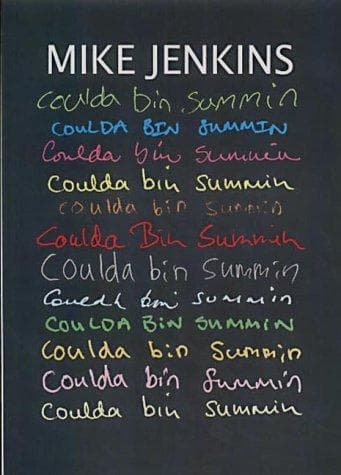 MIKE JENKINS
coulda bin summin
COULDA BIN SUMMIN
Coulda bin Summin
Coulda bin Summin
coulda bin Summin
Coulda Bin Summin
Coulda bin Summin
Coulda bin summin
COULDA BIN SUMMIN
Coulda bin Summin
Coulda bin Summin
Coulda bin Summin